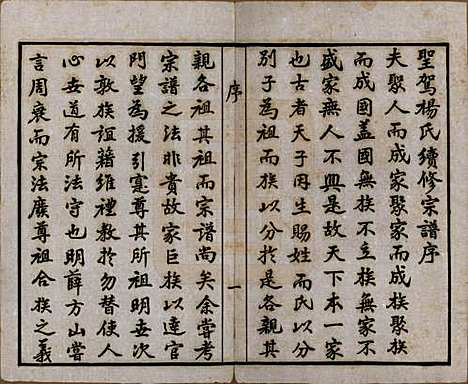 聖駕楊氏續修宗譜序
夫聚人而成家聚家而成族聚族
而成國蓋國無族不立族無家不
盛家無人不興是故天下本一家
也古者天子因生賜姓而氏以分
別子為祖而族以分於是各親其
序
一
親各祖其祖而宗譜尚矣余嘗考
宗譜之法非貴故家巨族以達官
門望為援引寔尊其所祖明世次
以敦族誼藉維禮教於勿替使人
心世道有所法守也明薛方山嘗
言周衰而宗法廢尊祖合族之義